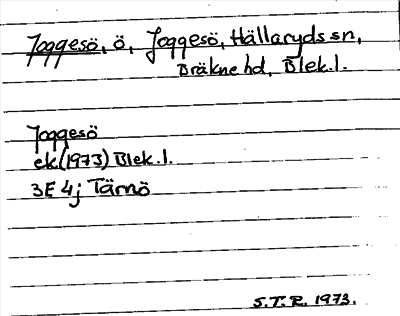 Joggesö, ö, Joggesö, Hällaryds sn,
Bräkne hd, Blek.l.
Joggesö
ek.(1973) Blek.l.
3E 4j Tärnö
S.T.R. 1973.